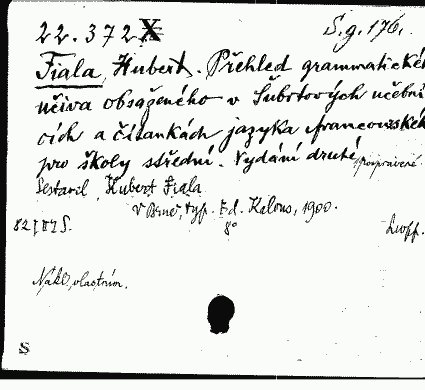 22.372 X S.g.176.
Fiala, Hubert. Přehled grammatické
učiva obsaženého v Šubrtových učebni
cích a čítankách jazyka francouzské
pro školy střední. Vydání druhé, poopravené.
Sestavil Hubert Fiala.
V Brně, typ. Ed. Kálous, 1900.
8°
Nákl. vlastním.
S